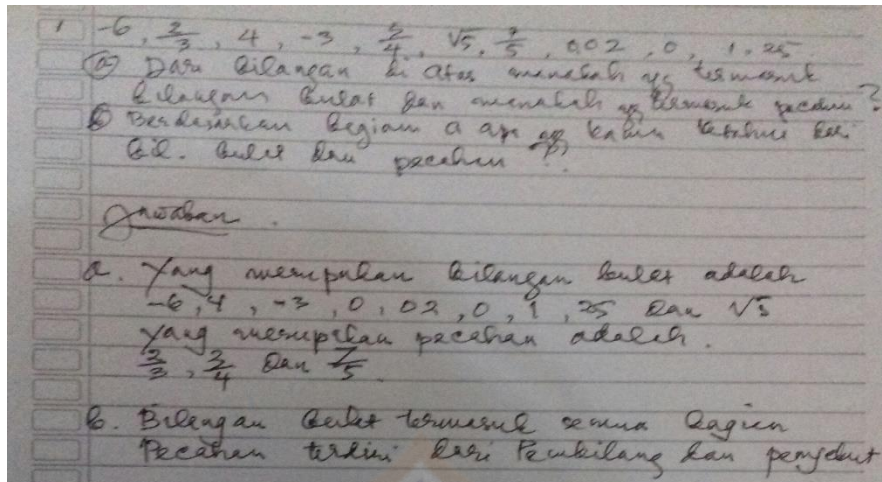 1 -6, 2/3, 4, -3, 5/4, √5, 7/5, 0,02, 0, 1,25
a) Dari bilangan di atas manakah yg termasuk
bilangan bulat dan manakah yg termasuk pecahan?
b) Berdasarkan bagian a apa yg kalian ketahui dari
bil. bulat dan pecahan ?
Jawaban.
a. Yang merupakan bilangan bulat adalah
-6, 4, -3, 0, 02, 0, 1, 25 dan √5
yang merupakan pecahan adalah.
dan 7/5.
b. Bilangan bulat termasuk semua bagian
Pecahan terdiri dari Pembilang dan penyebut